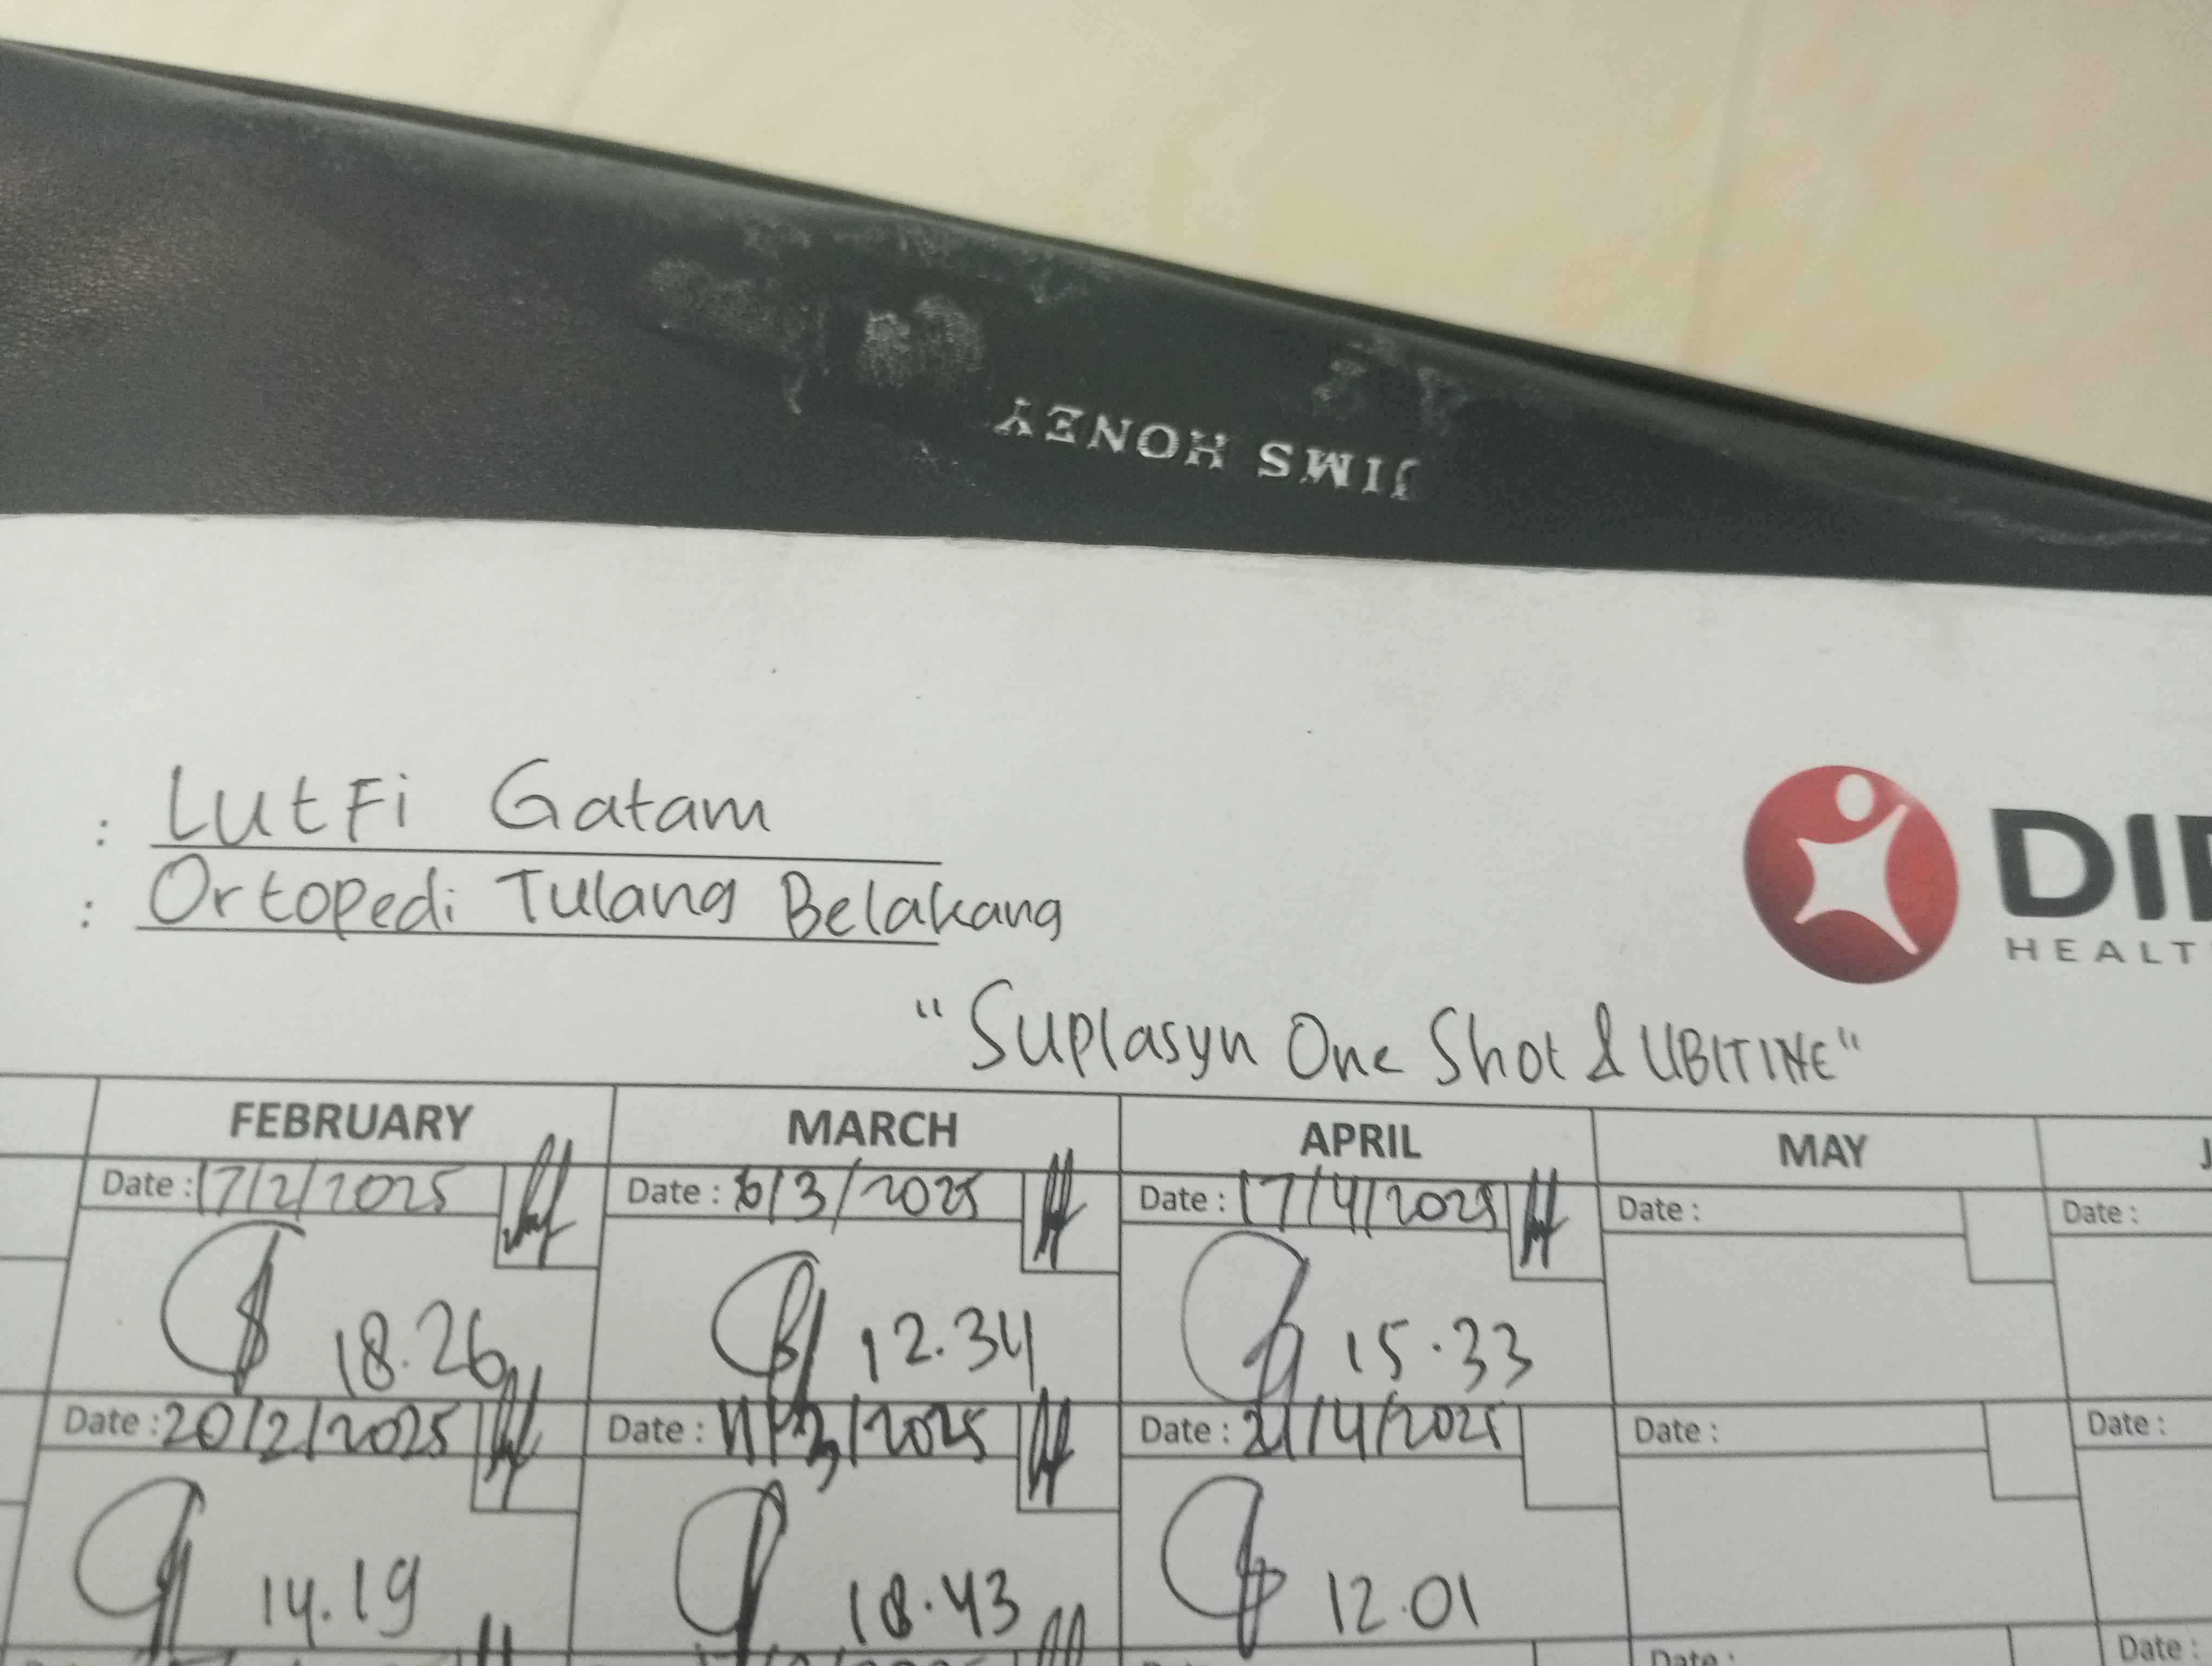 JIMS HONEY
: Lutfi Gatam
: Ortopedi Tulang Belakang
HEALT
"Suplasyn One Shot & UBITINE"
FEBRUARY MARCH APRIL MAY
Date : 17/2/2025 Date : 6/3/2025 Date : 17/4/2025 Date : Date :
18.26 12.34 15.33
Date : 20/2/2025 Date : 11/3/2025 Date : 21/4/2025 Date : Date :
14.19 18.43 12.01
Date : Date :